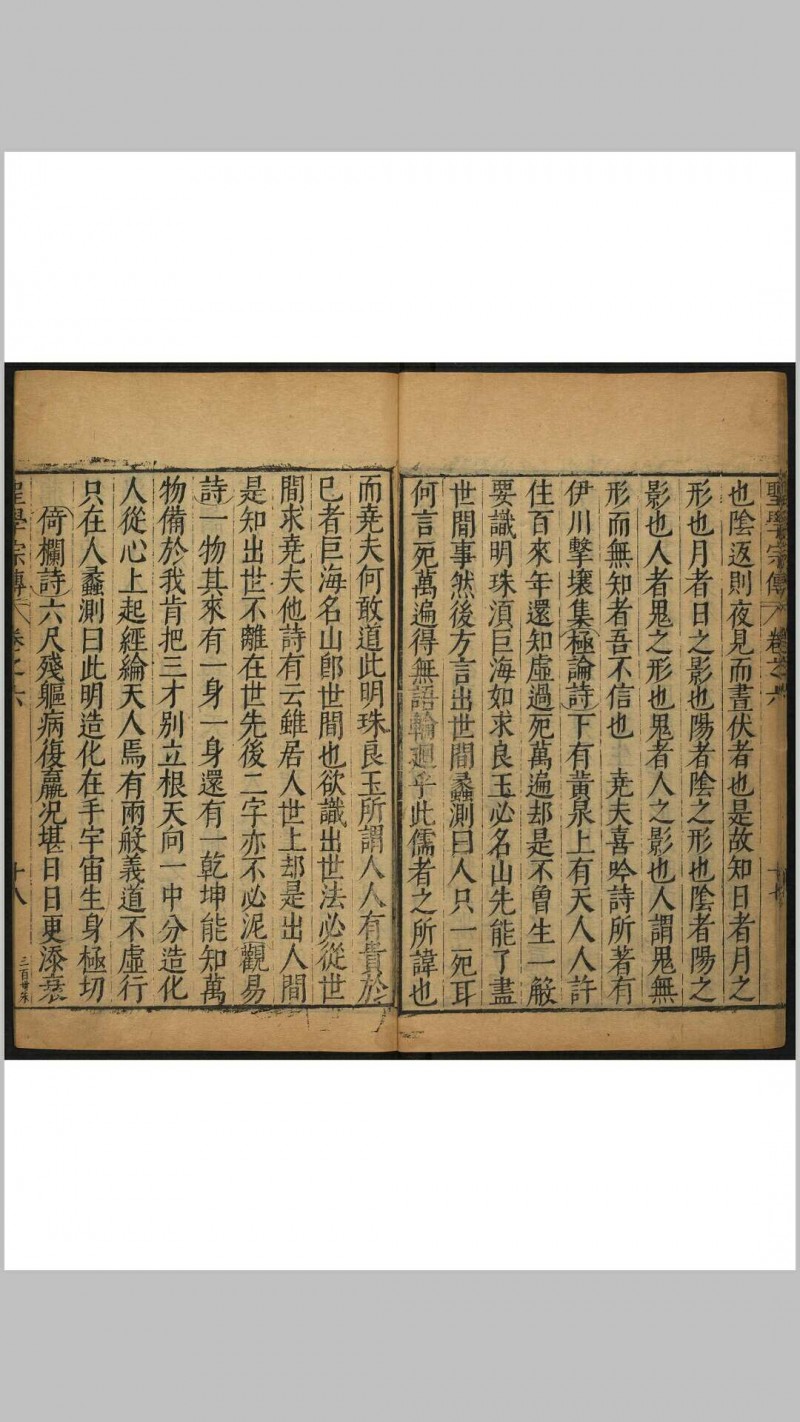 聖學宗傳 卷之六 十七
也陰返則夜見而晝伏者也是故知日者月之
形也月者日之影也陽者陰之形也陰者陽之
影也人者鬼之形也鬼者人之影也人謂鬼無
形而無知者吾不信也 堯夫喜吟詩所著有
伊川擊壤集極論詩下有黃泉上有天人人許
住百來年還知虛過死萬遍却是不曾生一般
要識明珠須巨海如求良玉必名山先能了盡
世間事然後方言出世間蠡測曰人只一死耳
何言死萬遍得無語輪迴乎此儒者之所諱也
而堯夫何敢道此明珠良玉所謂人人有貴於
已者巨海名山卽世間也欲識出世法必從世
間求堯夫他詩有云雖居人世上却是出人間
是知出世不離在世先後二字亦不必泥觀易
詩一物其來有一身一身還有一乾坤能知萬
物備於我肯把三才别立根天向一中分造化
人從心上起經綸天人焉有兩般義道不虛行
只在人蠡測曰此明造化在手宇宙生身極切
倚欄詩六尺殘軀病復羸况堪日日更添衰
聖學宗傳 卷之六 十八